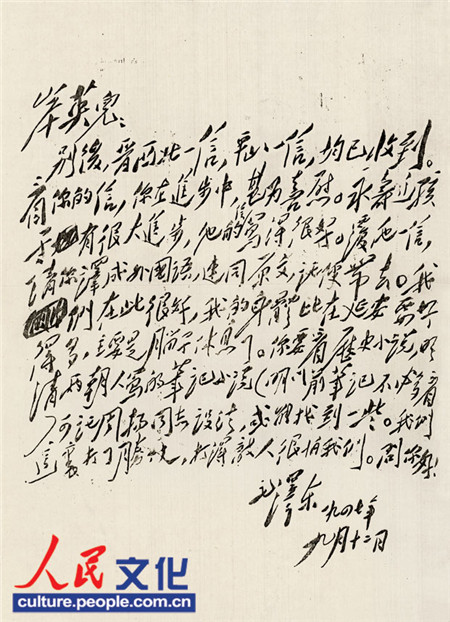 岸英兒：
别後，晋西北一信，平山一信，均已收到。
看你的信，你在進步中，甚为喜慰。永壽这孩
子有很大進步，他的信寫得很好。復他一信，
請你譯成外國語，連同原文，託便帶去。我
們在此很好，我的身體比在延安要好
得多，主要是腦子休息了。你要看歷史小說，明
清两朝人寫的筆記小說（明以前筆記不必多看
）可託周揚同志設法，或能找到一些。我們
這裏打了勝仗，打得敵人很怕我們。問你好！
毛澤东
一九四七年
九月十二日
人民文化
culture.people.com.cn